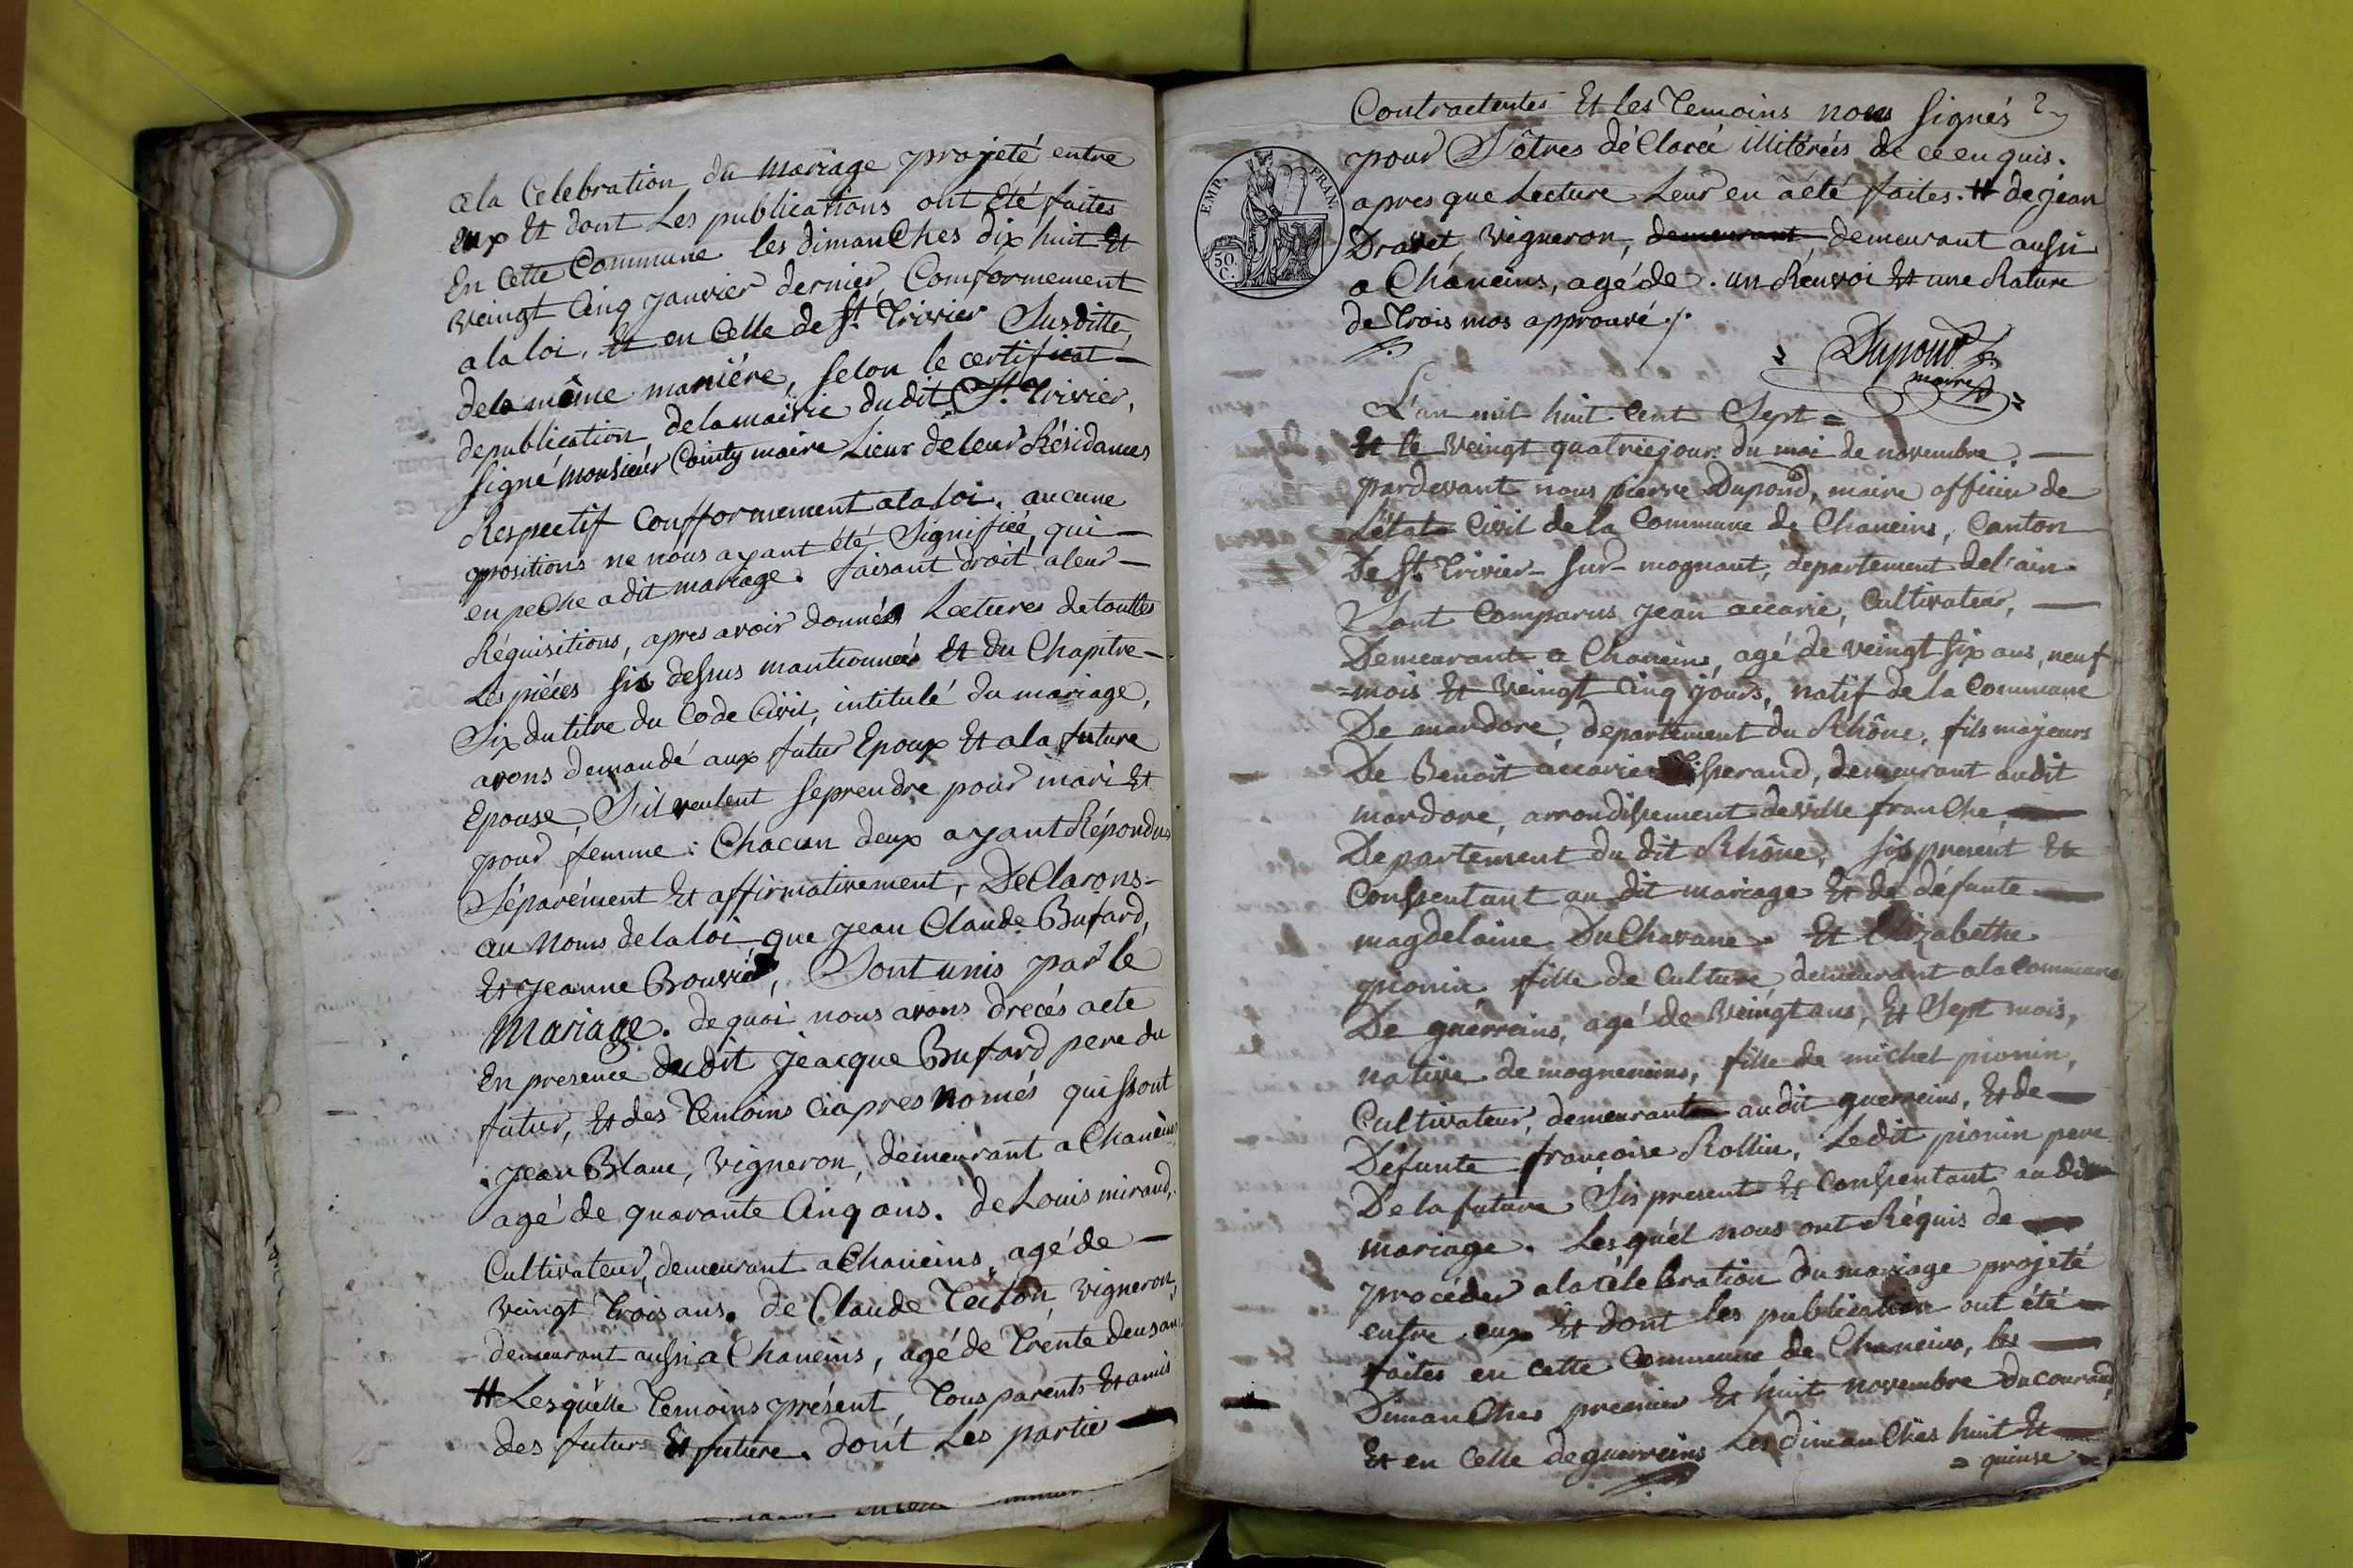 a la Celebration du mariage projeté entre
eux Et dont Les publications ont été faites
En Cette Commune les dimanches dix huit Et
veingt Cinq janvier dernier, Comformement
a la loi, Et en Celle de St. Trivier Susditte,
de la même maniére, selon le certificat
de publication de la mairie du dit St. Trivier,
signé monsieur Cointy maire Lieux de leur Résidances
Respectif Confformement a la loi, aucune
opositions ne nous ayant été Signifiée, qui
en peche a dit mariage. faisant droit a leur
Réquisitions, apres avoir donnés Lectures de touttes
Les piéces sis dessus mantionnées Et du Chapitre
Six du titre du Code Civil, intitulé du mariage,
avons demandé aux futur Epoux Et a la future
Epouse, S'il veulent se prendre pour mari Et
pour femme : Chacun deux ayant Répondus
Séparément Et affirmativement, Declarons
au Noms de la loi que jean Claude Bufard,
Et jeanne Bouvier, Sont unis par le
Mariage. de quoi nous avons drecés acte
En presence du dit jeacque Bufard pere du
futur, Et des Temoins ci apres només qui sont
jean Blanc, vigneron, demeurant a Chaneins
agé de quarante Cinq ans. de Louis miraud,
Cultivateur, demeurant a Chaneins, agé de
veingt trois ans. de Claude vigneron,
demeurant aussi a Chaneins, agé de Trente deus ans
# Lesquelle Temoins présent, Tous parents Et amis
des futurs Et future. dont Les partie
Contractentes Et les Temoins nous signés 2
pour S'êtres déClaréé illitérés de ce enquis.
apres que Lecture Leur en a été faites. # de jean
Dravet, vigneron, demeurant, demeurant aussi
a Chaneins, agé de . un Renvoi Et une Rature
de Trois mos approuvé ./.
Dupond
maire
L'an mil huit Cent Sept =
Et le veingt quatrie jour du moi de novembre.
pardevant nous pierre Dupond, maire officier de
L'état Civil de la Commune de Chaneins, Canton
De St. Trivier sur mognant, departement del'ain.
Sont Comparus jean accarie, Cultivateur,
Demeurant a Chaneins, agé de veingt six ans, neuf
=mois Et veingt Cinq jours, natif de la Commune
De mardore, departement du Rhône, fils majeurs
De Benoit accarie Tisserand, demeurant audit
mardore, arrondissement de ville franche,
Departement du dit Rhône, sis present Et
Conssentant au dit mariage Et de défunte
magdelaine DuChavane. Et Elizabethe
pionin fille de Culture demeurant a la commune
De guerreins, agé de veingt ans, Et Sept mois,
native de mogneneins, fille de michel pionin,
Cultivateur, demeurant audit guerreins, Et de
Défunte francoise Rollin, Ledit pionin pere
De la future Sis present Et Conssentant au dit
mariage. Lesquél nous ont Réquis de
procéder a la célebration du mariage projeté
entre eux Et dont les publication ont été
faites en cette Commune de Chaneins, les
Dimanches premier Et huit novembre du courand,
Et en Celle de guerreins Les dimanches huit Et
= quinse =
EMP. FRAN.
50 C.